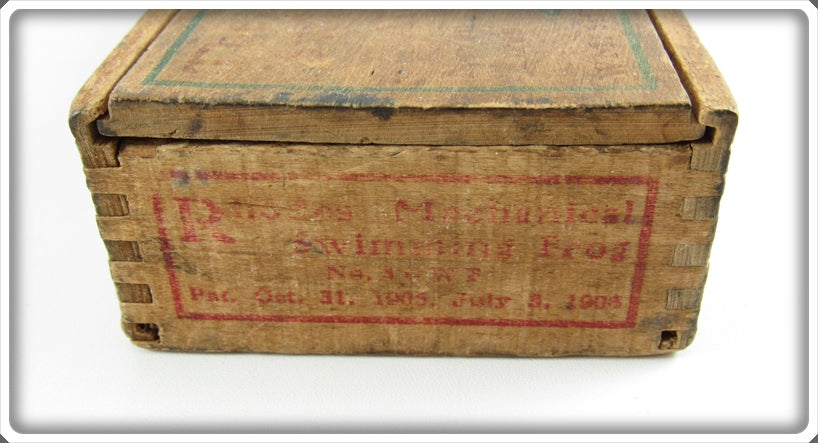 Rhodes Mechanical
Swimming Frog
No.
Pat. Oct. 31, 1905, July 3, 1906